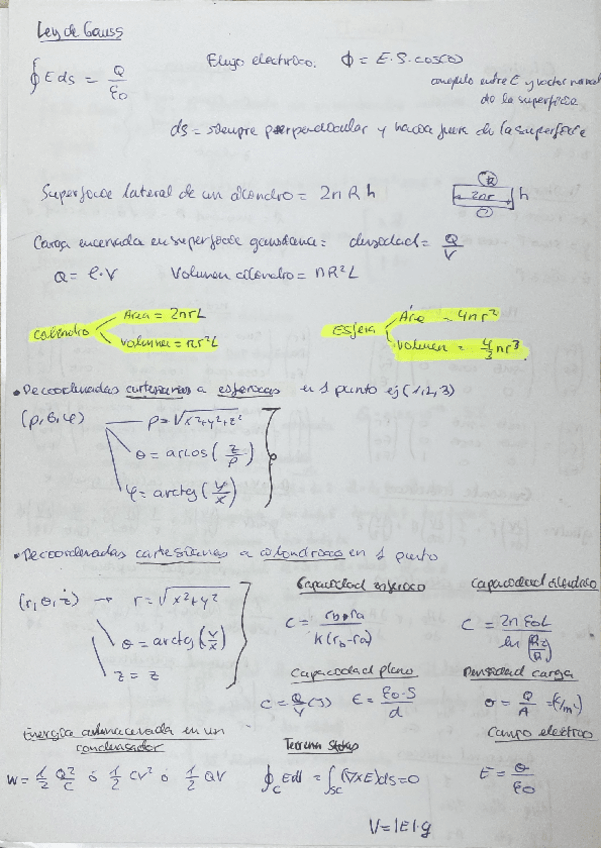 Ley de Gauss
∮ E ds = Q/ε0
Flujo electrico. ϕ = E·S·cos(θ)
angulo entre E y vector normal
de la superficie
ds = siempre perpendicular y hacia fuera de la superficie
Superficie lateral de un cilindro = 2πRh
2πr h
Carga encerrada en superficie gaussiana: densidad = Q/V
Q = ρ·V Volumen cilindro = πR²L
Cilindro Área = 2πrL
Volumen = πr²L
Esfera Área = 4πr²
Volumen = 4/3 πr³
• De coordenadas cartesianas a esfericas en 1 punto ej (1,2,3)
(ρ,θ,φ) ρ = √x²+y²+z²
θ = arcos(z/ρ)
φ = arctg(y/x)
• De coordenadas cartesianas a cilindricas en 1 punto
(r,θ,z) → r = √x²+y²
θ = arctg(y/x)
z = z
Capacidad esferico
C = rb·ra/k(rb-ra)
Capacidad cilindrico
C = 2π ε0 L/ln(R2/R1)
Capacidad plano
C = Q/V (J) C = ε0·S/d
Densidad carga
σ = Q/A = C/m²
Energia almacenada en un
condensador
W = 1/2 Q²/C ó 1/2 CV² ó 1/2 QV
Teorema Stokes
∮c Edl = ∫sc (∇xE)ds = 0
Campo electrico
E = σ/ε0
V = |E|·d